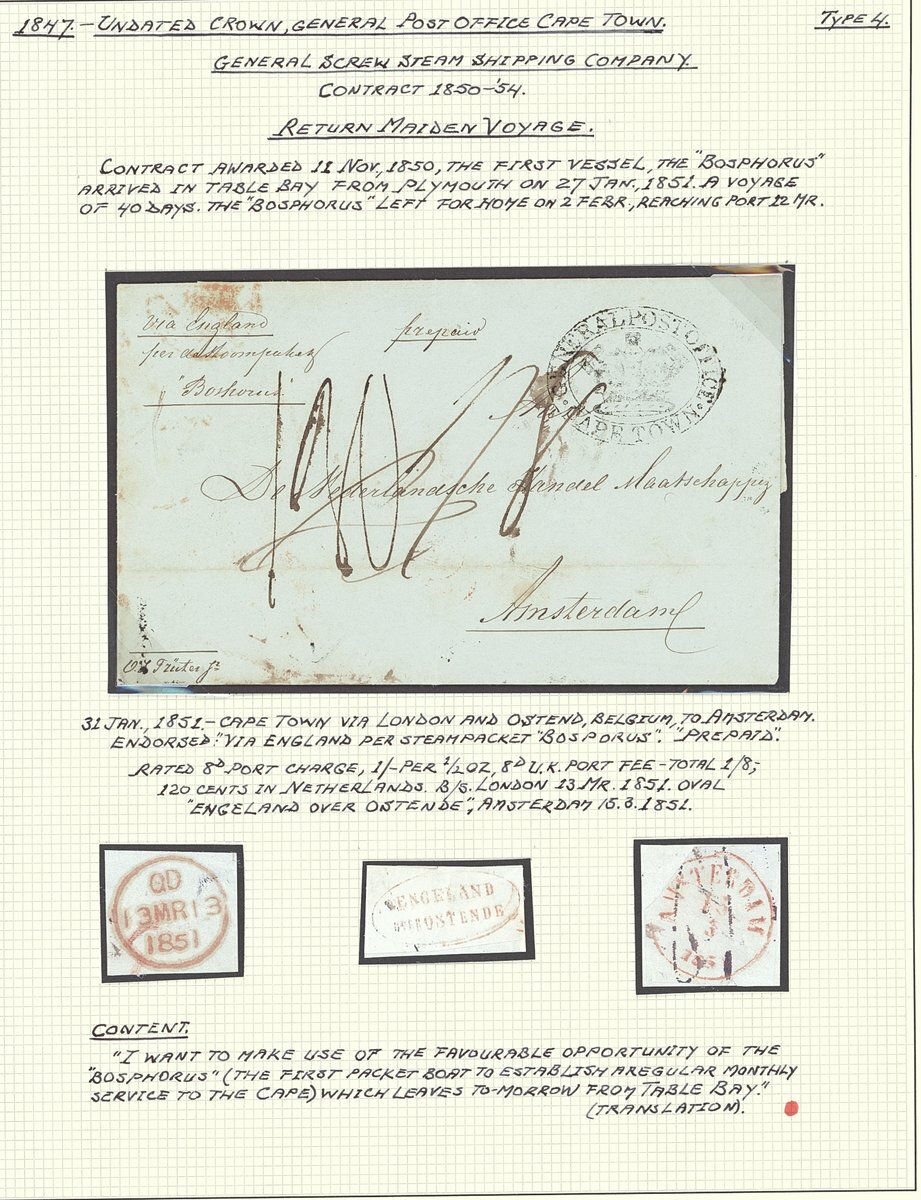 1847.- UNDATED CROWN, GENERAL POST OFFICE CAPE TOWN. TYPE 4.
GENERAL SCREW STEAM SHIPPING COMPANY.
CONTRACT 1850-'54.
RETURN MAIDEN VOYAGE.
CONTRACT AWARDED 11 NOV, 1850, THE FIRST VESSEL, THE "BOSPHORUS"
ARRIVED IN TABLE BAY FROM PLYMOUTH ON 27 JAN., 1851. A VOYAGE
OF 40 DAYS. THE "BOSPHORUS" LEFT FOR HOME ON 2 FEBR., REACHING PORT 12 MR.
via England
prepaid
per
"Boshorus"
GENERAL POST OFFICE
CAPE TOWN
De Nederlandsche Handel Maatschappij
120
Amsterdam
31 JAN., 1851.- CAPE TOWN VIA LONDON AND OSTEND, BELGIUM, TO AMSTERDAM.
ENDORSED: "VIA ENGLAND PER STEAMPACKET "BOSPORUS". "PREPAID".
RATED 8D PORT CHARGE, 1/- PER 1/2 OZ, 8D U.K. PORT FEE - TOTAL 1/8;
120 CENTS IN NETHERLANDS. B/S. LONDON 13 MR. 1851. OVAL
"ENGELAND OVER OSTENDE", AMSTERDAM 15.3.1851.
QD
13MR13
1851
ENGELAND
OVER OSTENDE
AMSTERDAM
CONTENT.
"I WANT TO MAKE USE OF THE FAVOURABLE OPPORTUNITY OF THE
"BOSPHORUS" (THE FIRST PACKET BOAT TO ESTABLISH A REGULAR MONTHLY
SERVICE TO THE CAPE) WHICH LEAVES TO-MORROW FROM TABLE BAY."
(TRANSLATION).